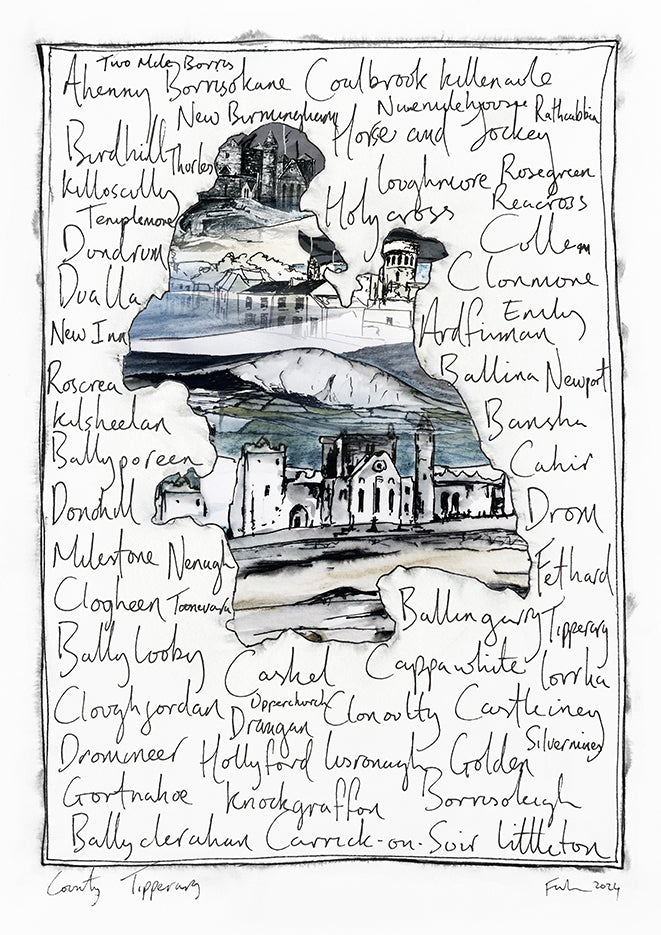 Two Mile Borris
Ahenny Borrisokane Coalbrook Killenaule
New Birmingham Rathcabbin
Birdhill Thurles Horse and Jockey
Killoscully Loughmore Rosegreen
Templemore Holycross Reacross
Dundrum
Dualla Clonmore
New Inn Ardfinnan Emly
Roscrea Ballina Newport
Kilsheelan Bansha
Ballyporeen Cahir
Donohill Drom
Milestone Nenagh Fethard
Clogheen Toomevara Ballingarry Tipperary
Ballylooby Cashel Cappawhite Lorrha
Cloughjordan Upperchurch Clonoulty Castleiney
Drangan
Dromineer Hollyford Golden Silvermines
Gortnahoe Knockgraffon Borrisoleigh
Ballyclerahan Carrick-on-Suir Littleton
County Tipperary 2024